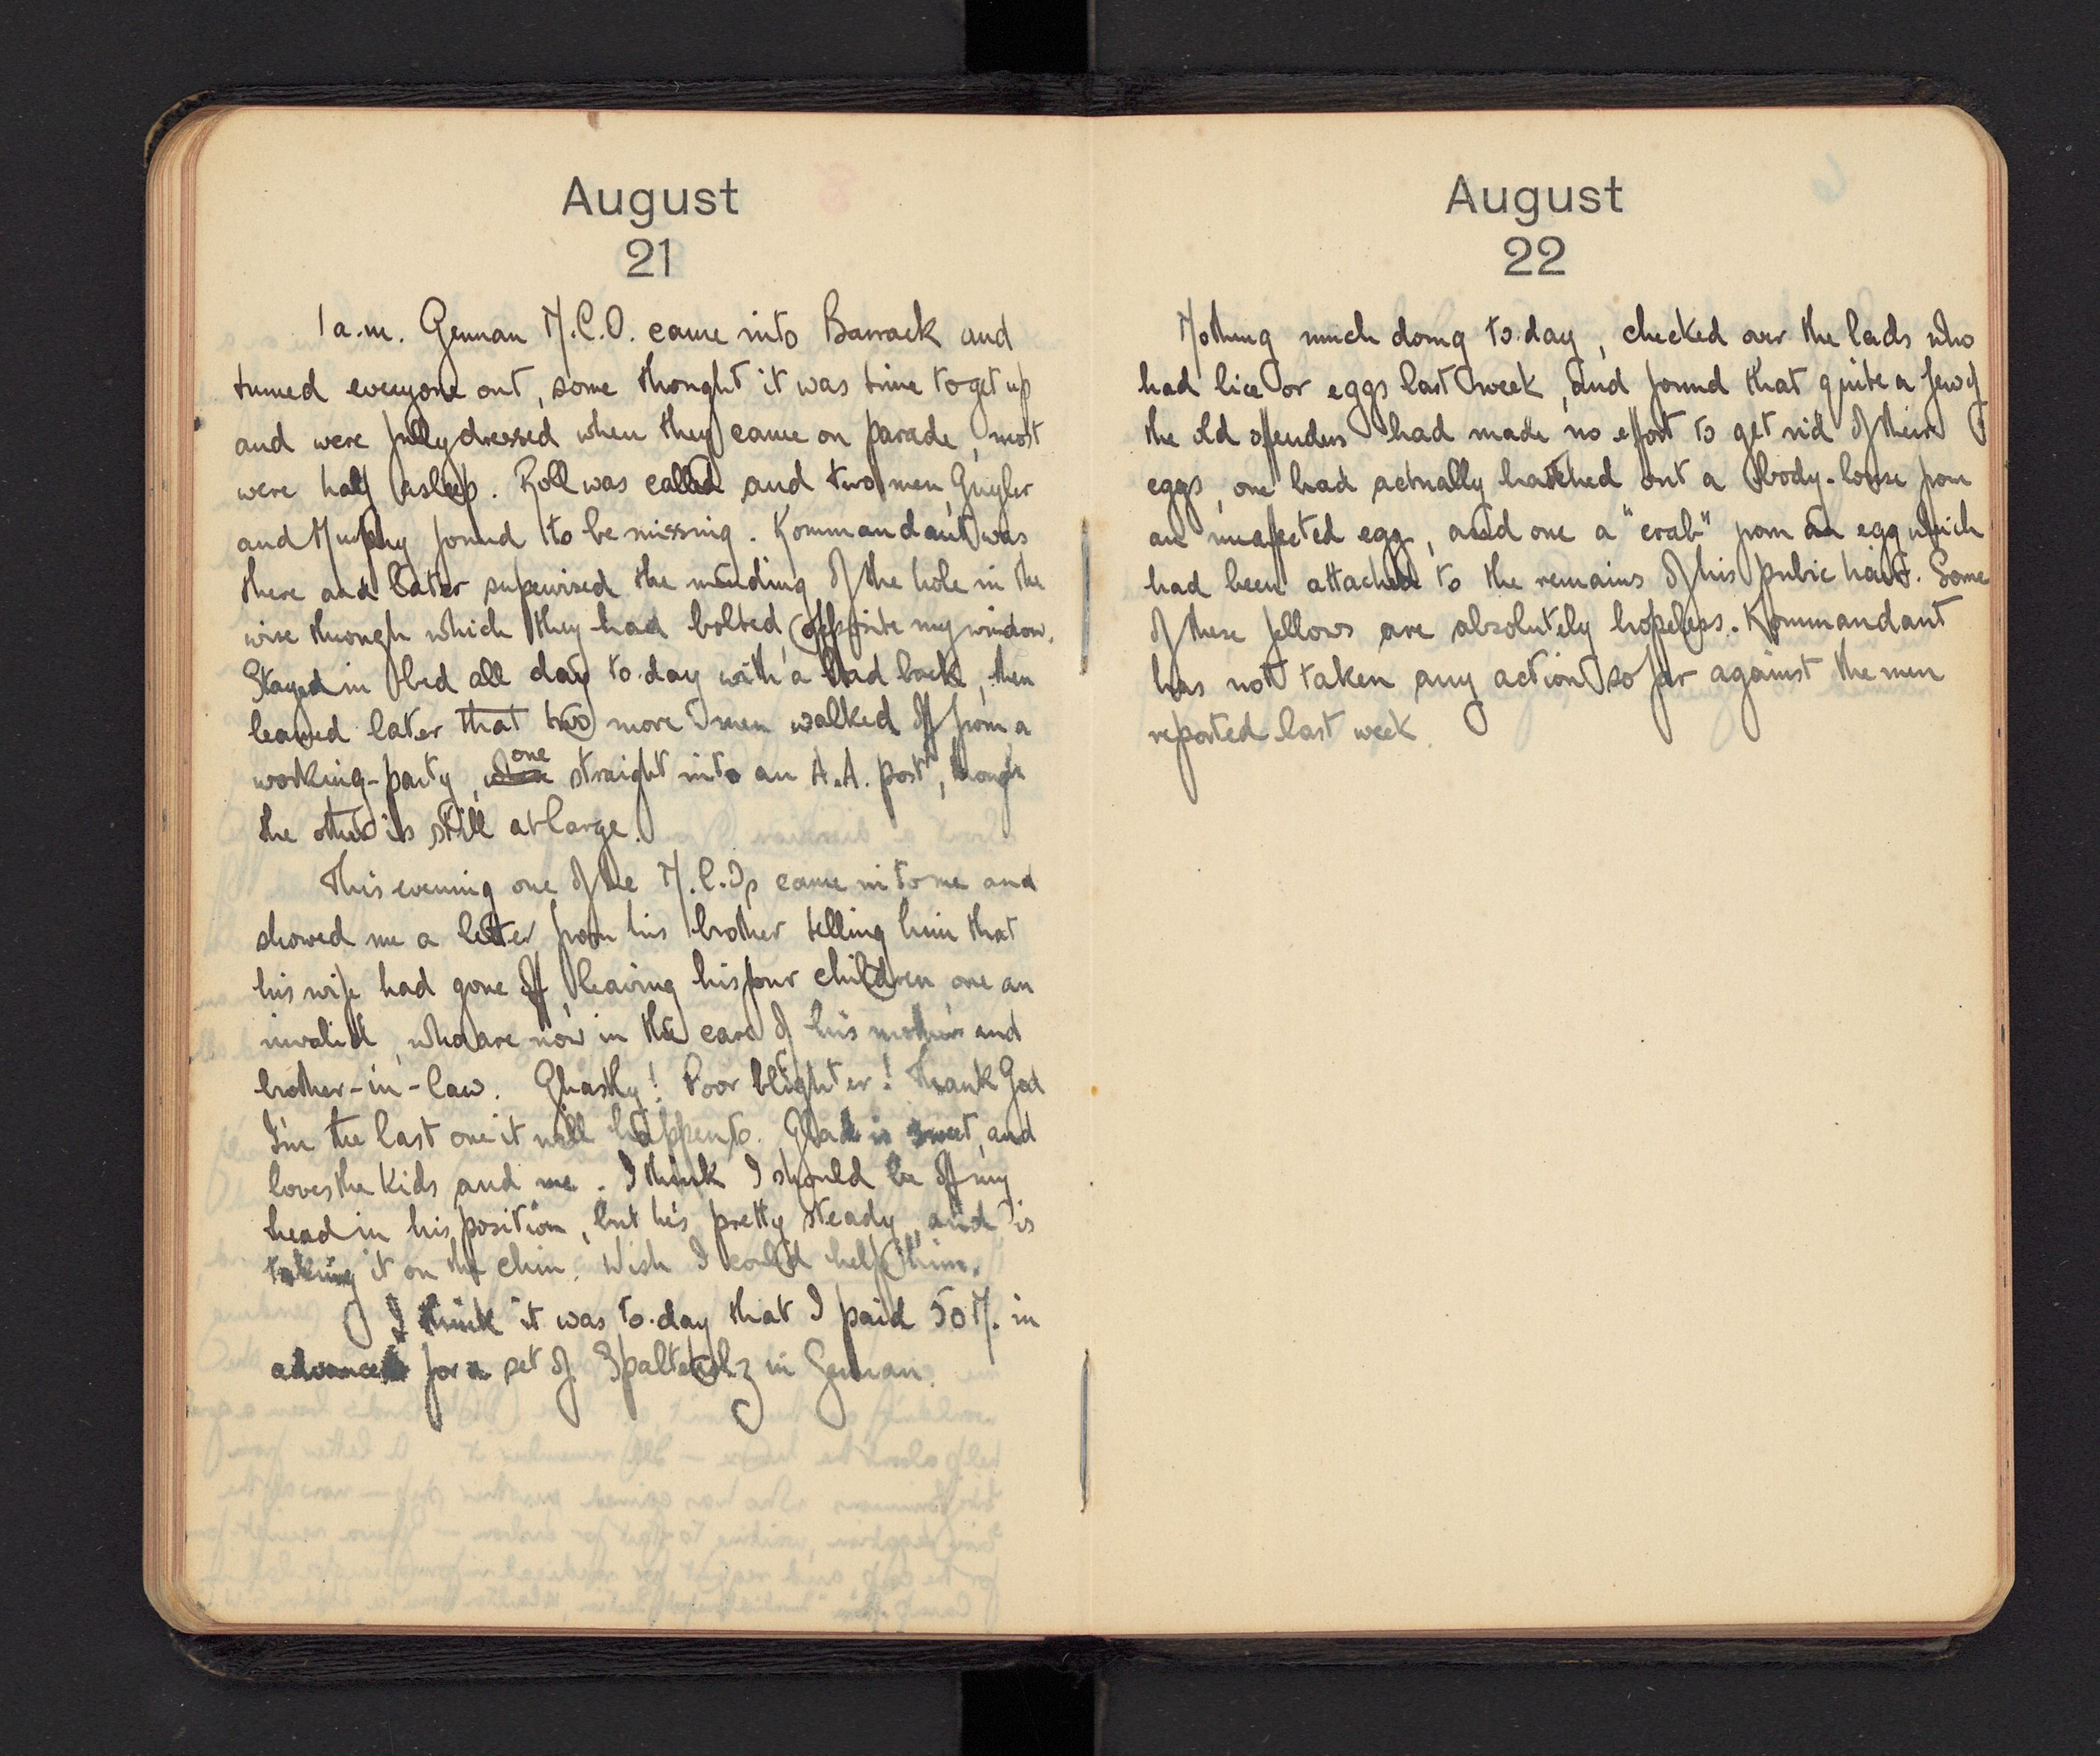 August
21
1 a.m. German N.C.O. came into Barrack and
turned everyone out, some thought it was time to get up
and were fully dressed when they came on parade, most
were half asleep. Roll was called and two men,
and Murphy found to be missing. Kommandant was
there and later supervised the mending of the hole in the
wire through which they had bolted, opposite my window.
Stayed in bed all day to-day with a bad back, then
learned later that two more men walked off from a
working-party, one straight into an A.A. post, though
the other is still at large.
This evening one of the N.C.Os came in to me and
showed me a letter from his brother telling him that
his wife had gone off, leaving his four children, one an
invalid, who are now in the care of his mother and
brother-in-law. Ghastly! Poor blighter! Thank God
I'm the last one it will happen to. Glad is sweet, and
loves the kids and me. I think I should be off my
head in his position, but he's pretty steady, and is
taking it on the chin. Wish I could help him.
I think it was to-day that I paid 50 M. in
advance for a set of Spalteholz in German.
August
22
Nothing much doing to-day, checked over the lads who
had lice or eggs last week, and found that quite a few of
the old offenders had made no effort to get rid of their
eggs, one had actually hatched out a body-louse from
an egg, and one a "crab" from an egg which
had been attached to the remains of his pubic hair. Some
of these fellows are absolutely hopeless. Kommandant
has not taken any action so far against the men
reported last week.